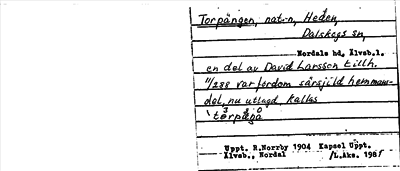 Torpängen, nat.n, Heden,
Dalskogs sn,
Nordals hd, Älvsb.l.
en del av David Larsson tillh.
11/288 var fordom särsjild hemmans-
del, nu utlagd, kallas
Uppt. R.Norrby 1904 Kapsel Uppt.
Älvsb., Nordal /L.Aks. 1985